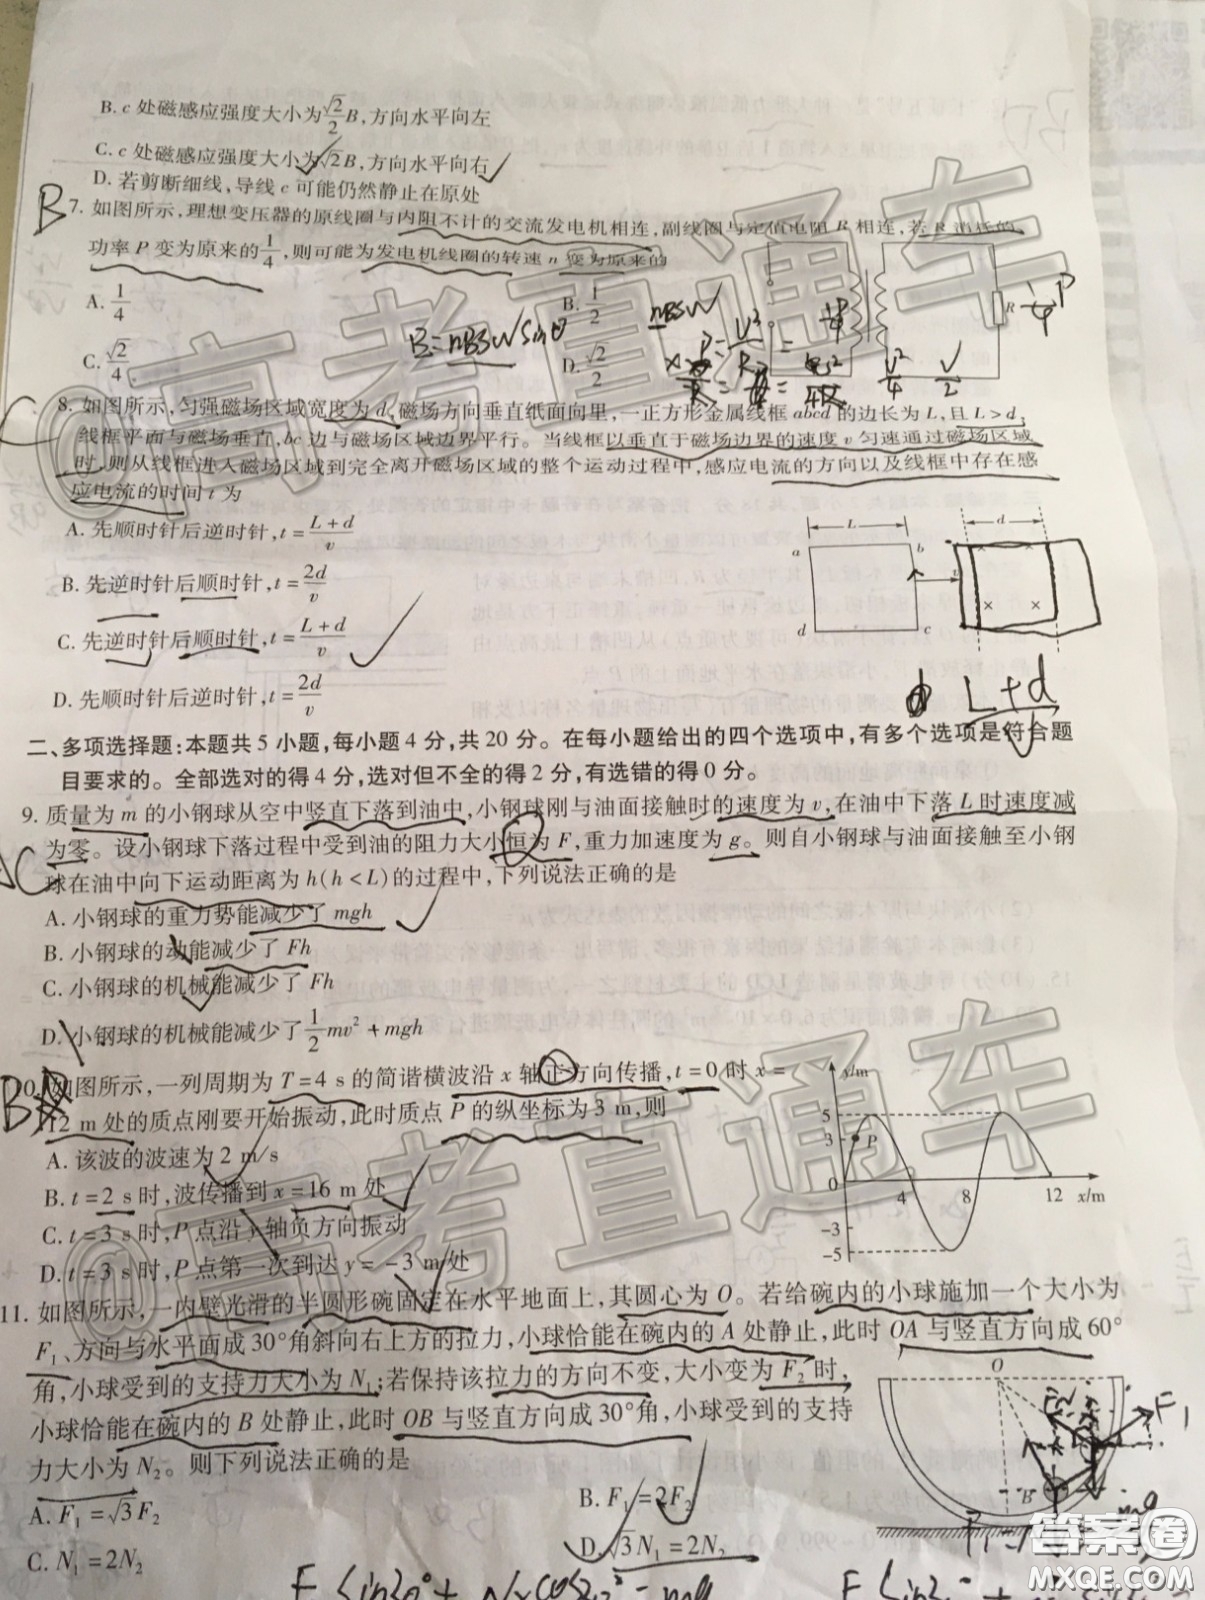 B. c 处磁感应强度大小为√2/2 B,方向水平向左
C. c 处磁感应强度大小为√2B,方向水平向右
D. 若剪断细线,导线 c 可能仍然静止在原处
B
7. 如图所示,理想变压器的原线圈与内阻不计的交流发电机相连,副线圈与定值电阻 R 相连,若 R 消耗的
功率 P 变为原来的1/4,则可能为发电机线圈的转速 n 变为原来的
A. 1/4
B. 1/2
C. √2/4
D. √2/2
R
C
8. 如图所示,匀强磁场区域宽度为 d,磁场方向垂直纸面向里,一正方形金属线框 abcd 的边长为 L,且 L>d,
线框平面与磁场垂直,bc 边与磁场区域边界平行。当线框以垂直于磁场边界的速度 v 匀速通过磁场区域
时,则从线框进入磁场区域到完全离开磁场区域的整个运动过程中,感应电流的方向以及线框中存在感
应电流的时间 t 为
A. 先顺时针后逆时针,t=(L+d)/v
B. 先逆时针后顺时针,t=2d/v
C. 先逆时针后顺时针,t=(L+d)/v
D. 先顺时针后逆时针,t=2d/v
L d
a b v
× ×
d c
L+d
二、多项选择题:本题共 5 小题,每小题 4 分,共 20 分。在每小题给出的四个选项中,有多个选项是符合题
目要求的。全部选对的得 4 分,选对但不全的得 2 分,有选错的得 0 分。
9. 质量为 m 的小钢球从空中竖直下落到油中,小钢球刚与油面接触时的速度为 v,在油中下落 L 时速度减
为零。设小钢球下落过程中受到油的阻力大小恒为 F,重力加速度为 g。则自小钢球与油面接触至小钢
球在油中向下运动距离为 h(h<L)的过程中,下列说法正确的是
A. 小钢球的重力势能减少了 mgh
B. 小钢球的动能减少了 Fh
C. 小钢球的机械能减少了 Fh
D. 小钢球的机械能减少了 1/2 mv²+mgh
10. 如图所示,一列周期为 T=4 s 的简谐横波沿 x 轴正方向传播,t=0 时 x=
12 m 处的质点刚要开始振动,此时质点 P 的纵坐标为 3 m,则
A. 该波的波速为 2 m/s
B. t=2 s 时,波传播到 x=16 m 处
C. t=3 s 时,P 点沿 y 轴负方向振动
D. t=3 s 时,P 点第一次到达 y=-3 m 处
y/m
5
3
P
0 4 8 12 x/m
-3
-5
11. 如图所示,一内壁光滑的半圆形碗固定在水平地面上,其圆心为 O。若给碗内的小球施加一个大小为
F₁、方向与水平面成 30°角斜向右上方的拉力,小球恰能在碗内的 A 处静止,此时 OA 与竖直方向成 60°
角,小球受到的支持力大小为 N₁;若保持该拉力的方向不变,大小变为 F₂ 时,
小球恰能在碗内的 B 处静止,此时 OB 与竖直方向成 30°角,小球受到的支持
力大小为 N₂。则下列说法正确的是
A. F₁=√3F₂
B. F₁=2F₂
C. N₁=2N₂
D. √3N₁=2N₂
O
F₁
B
mg
@高考直通车
@高考直通车
答案圈
MXQE.COM